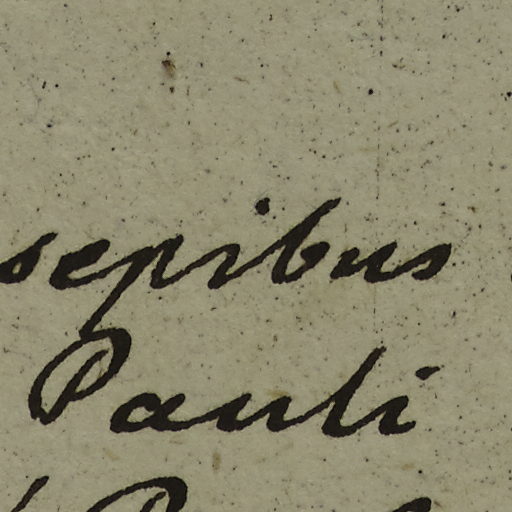 sepibus
Pauli